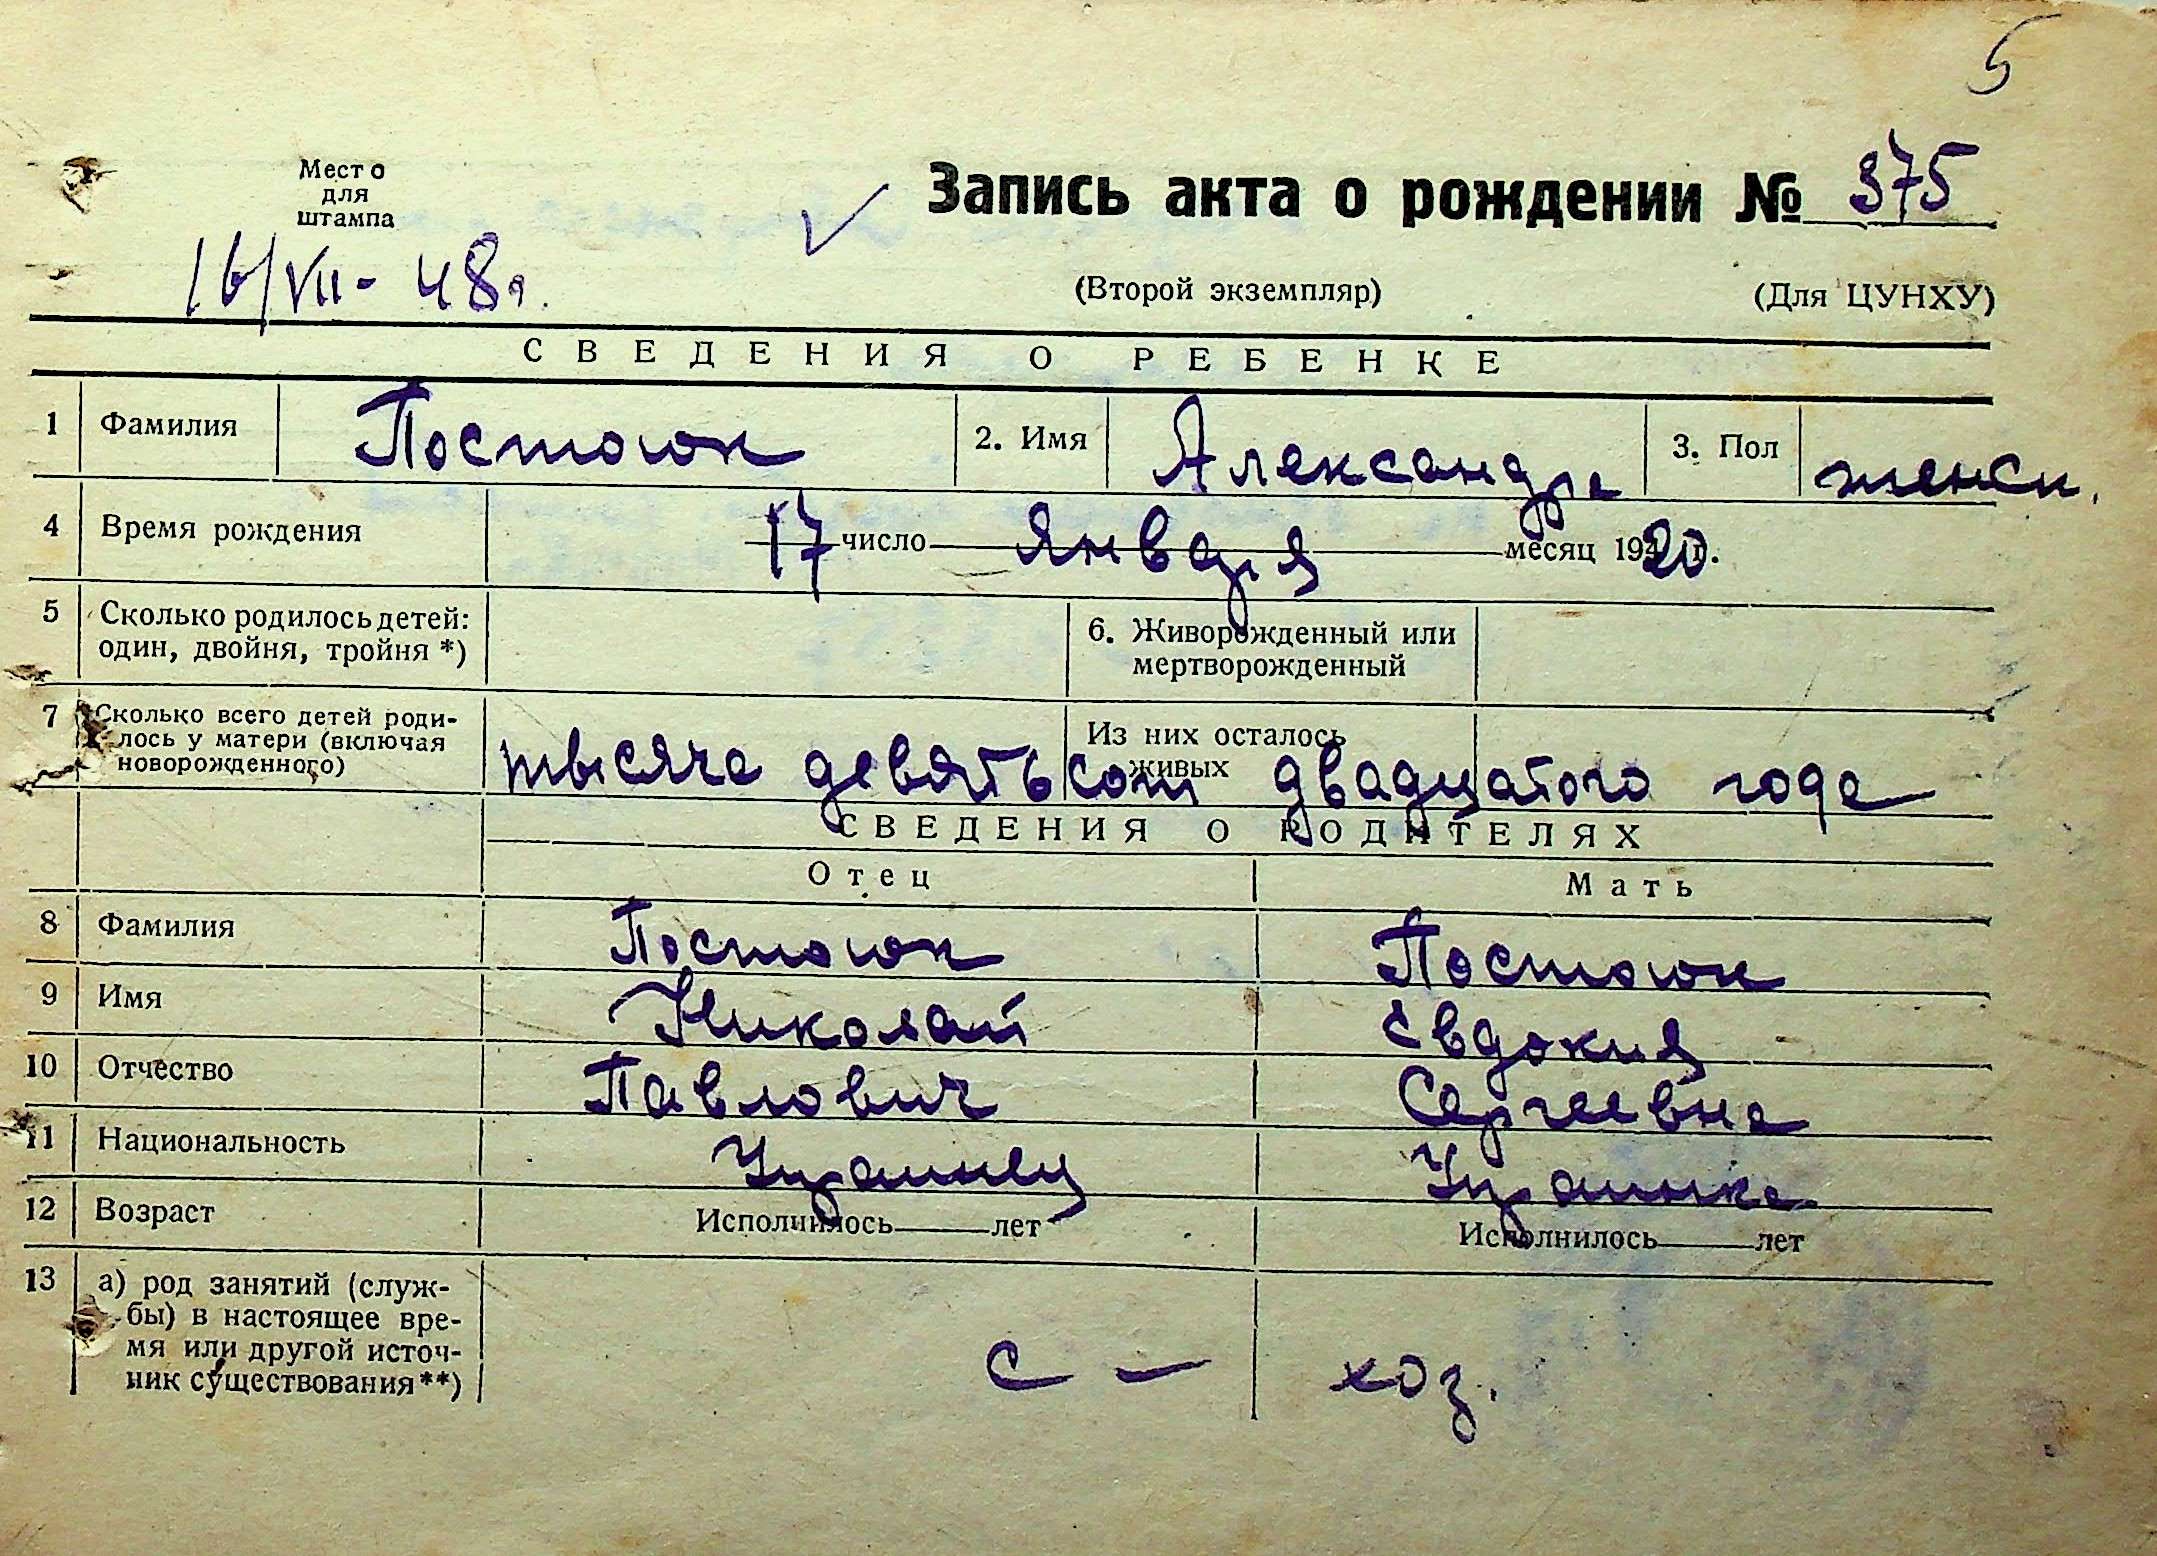 5
Место
для
штампа
Запись акта о рождении № 375
16/VII - 48 г.
(Второй экземпляр) (Для ЦУНХУ)
СВЕДЕНИЯ О РЕБЕНКЕ
1 Фамилия Постоюк 2. Имя Александра 3. Пол женск.
4 Время рождения 17 число января месяц 1920 г.
5 Сколько родилось детей: один, двойня, тройня *) 6. Живорожденный или мертворожденный
7 Сколько всего детей родилось у матери (включая новорожденного) Из них осталось живых
тысяча девятьсот двадцатого года
СВЕДЕНИЯ О РОДИТЕЛЯХ
Отец Мать
8 Фамилия Постоюк Постоюк
9 Имя Николай Евдокия
10 Отчество Павлович Сергеевна
11 Национальность Украинец Украинка
12 Возраст Исполнилось лет Исполнилось лет
13 а) род занятий (служ-
бы) в настоящее вре-
мя или другой источ-
ник существования**) с — хоз.